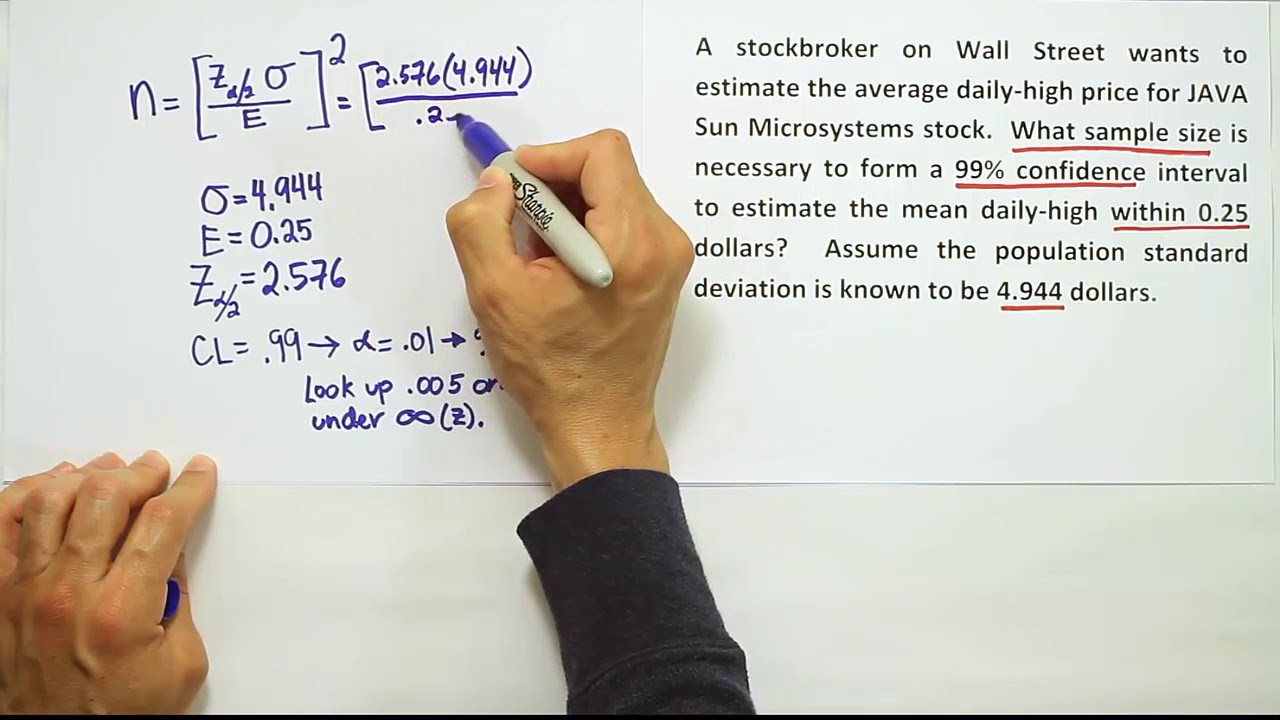 n = [Zα/2 σ / E]² = [2.576(4.944) / .2
σ = 4.944
E = 0.25
Zα/2 = 2.576
CL = .99 → α = .01 →
Look up .005 or
under ∞ (z).
Sharpie
A stockbroker on Wall Street wants to
estimate the average daily-high price for JAVA
Sun Microsystems stock. What sample size is
necessary to form a 99% confidence interval
to estimate the mean daily-high within 0.25
dollars? Assume the population standard
deviation is known to be 4.944 dollars.